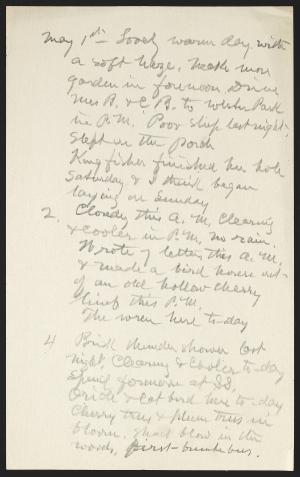 May 1st Lovely warm day with
a soft haze. Made more
garden in forenoon. Drive
Mrs B. & C. B. to Park
in P.M. Poor sleep last night.
Slept on the porch
Kingfisher finished her hole
Saturday & I think began
laying on Sunday
2. Cloudy this A.M. Clearing
& cooler in P.M. no rain.
Wrote 9 letters this A.M.
& made a bird house out
of an old hollow cherry
limb this P.M.
The wren here to-day
4 Brisk thunder shower last
night, Clearing & cooler to-day
Spend forenoon at
Oriole & Cat bird here to-day
Cherry trees & plum trees in
bloom. Shad blow in the
woods, first bumble bus.